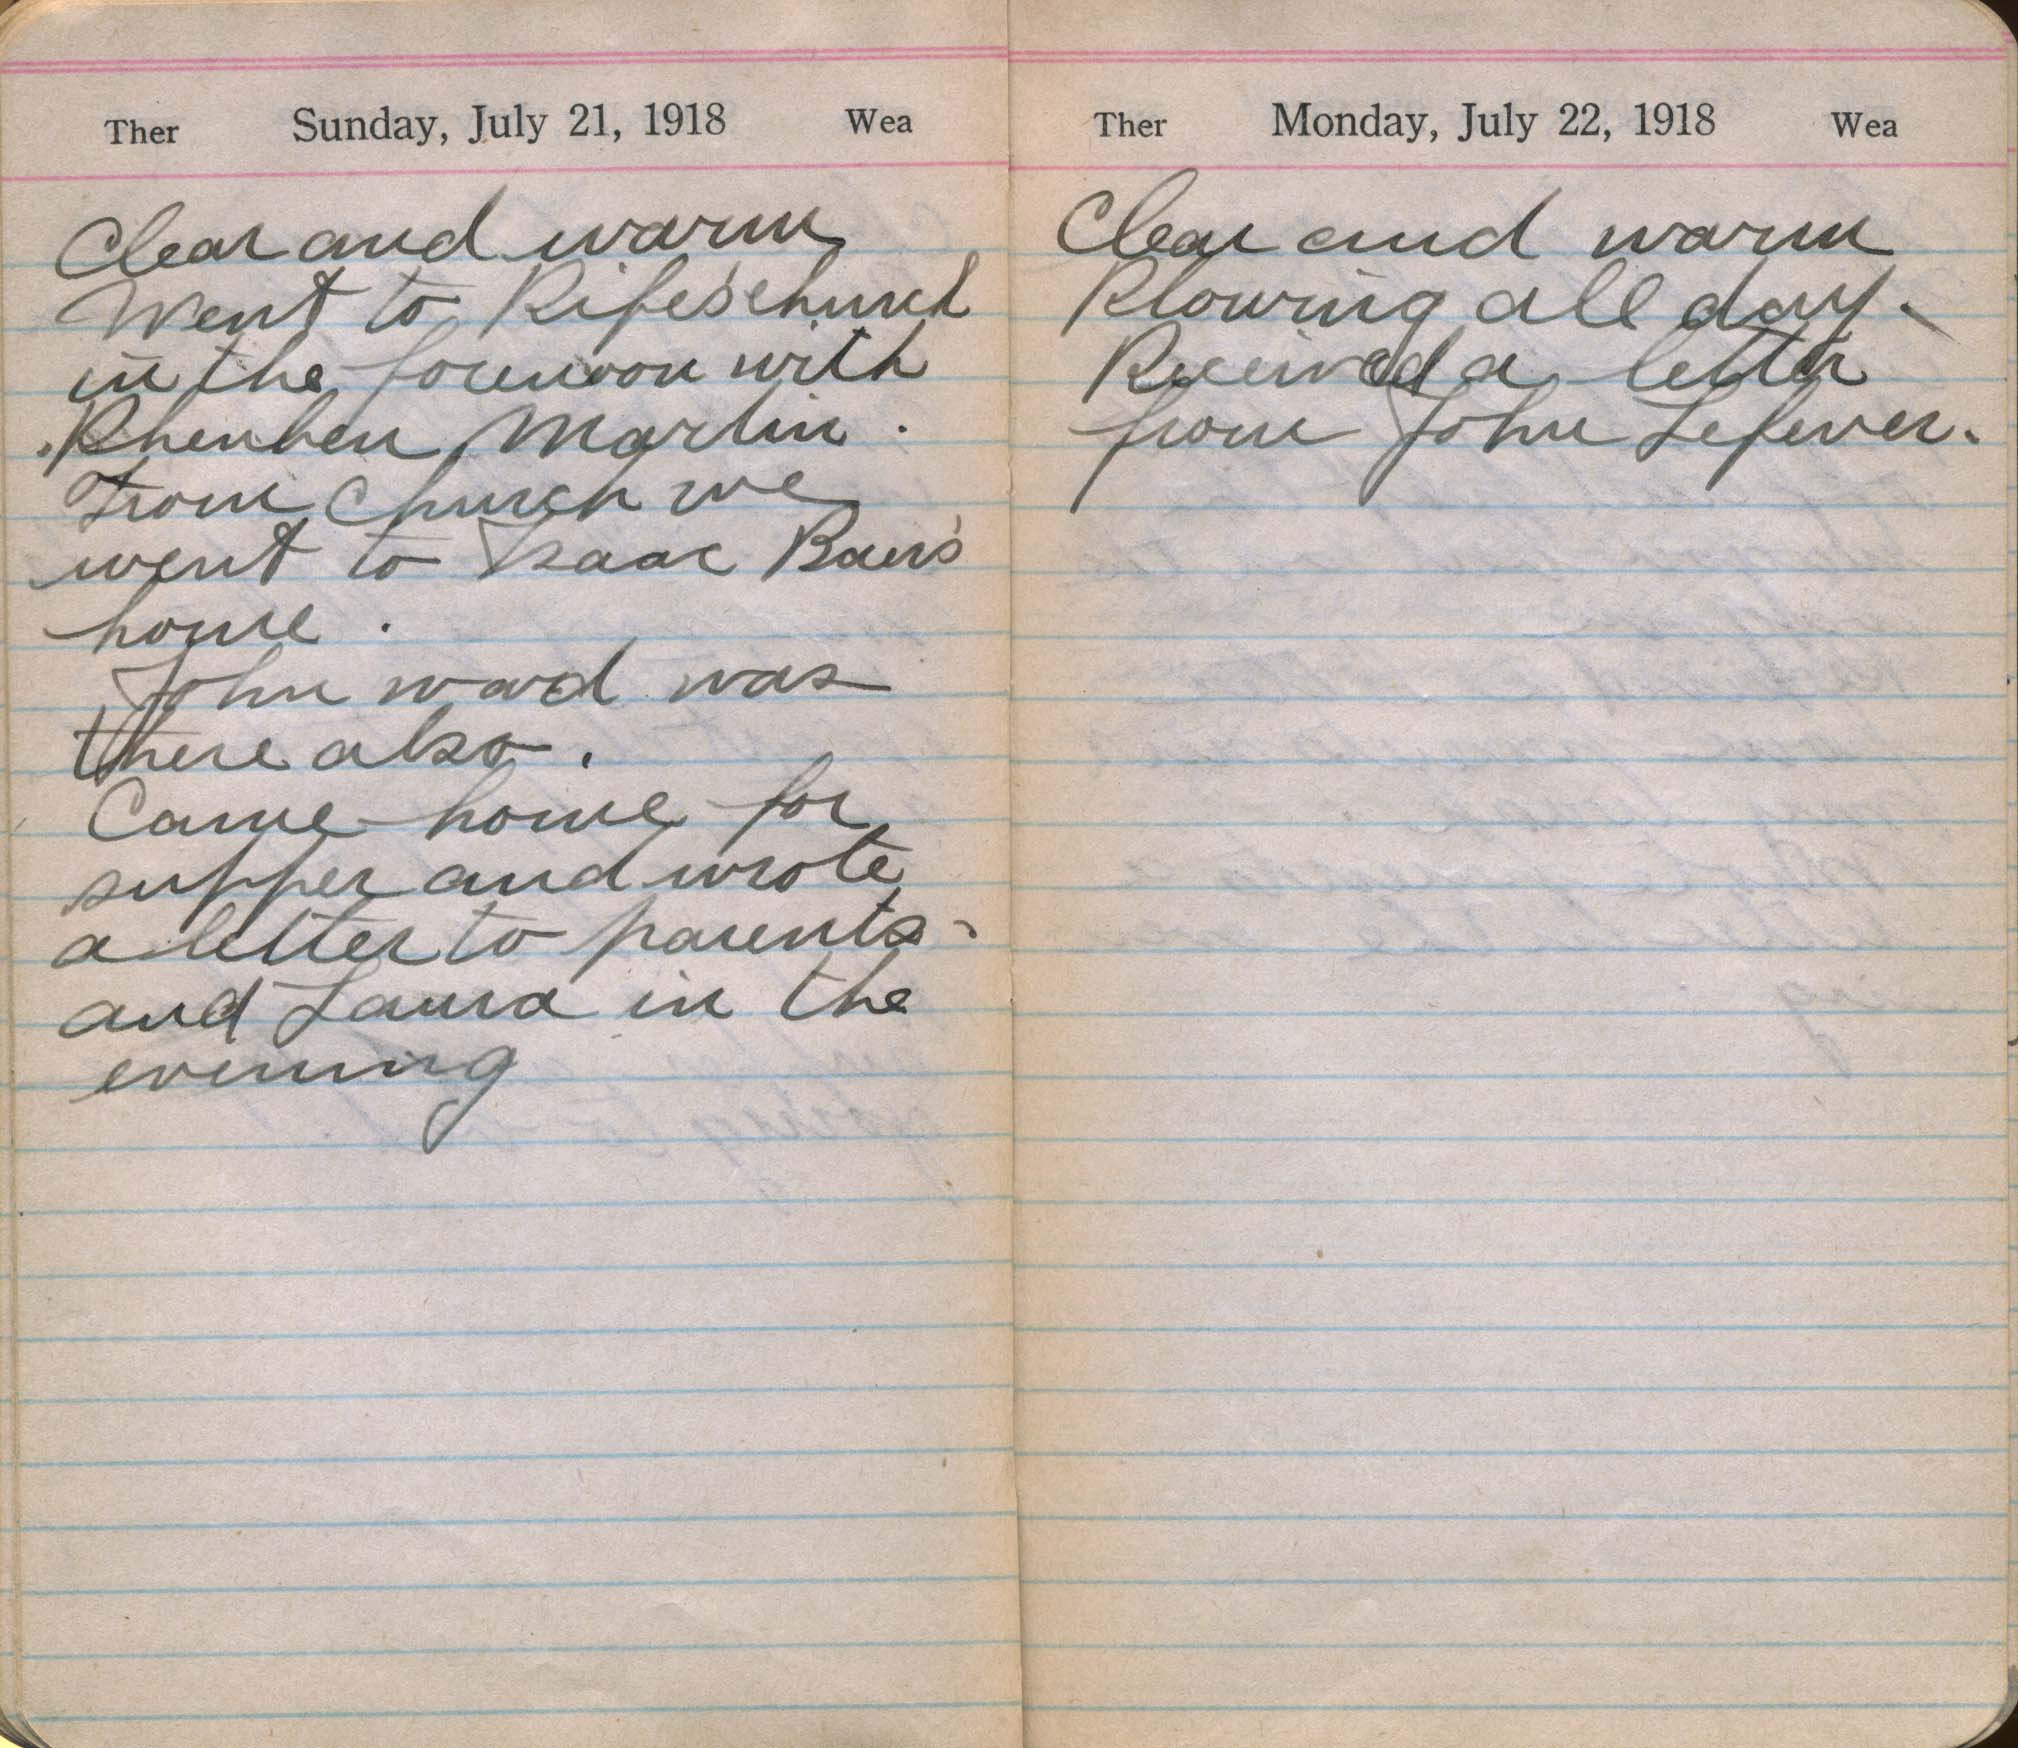 Ther Sunday, July 21, 1918 Wea
Clear and warm
Went to Rife's church
in the forenoon with
Rheuben Martin.
From Church we
went to Isaac Baer's
home.
John ward was
there also.
Came home for
supper and wrote
a letter to parents
and Laura in the
evening
Ther Monday, July 22, 1918 Wea
Clear and warm
Plowing all day.
Received a letter
from John Lefever.